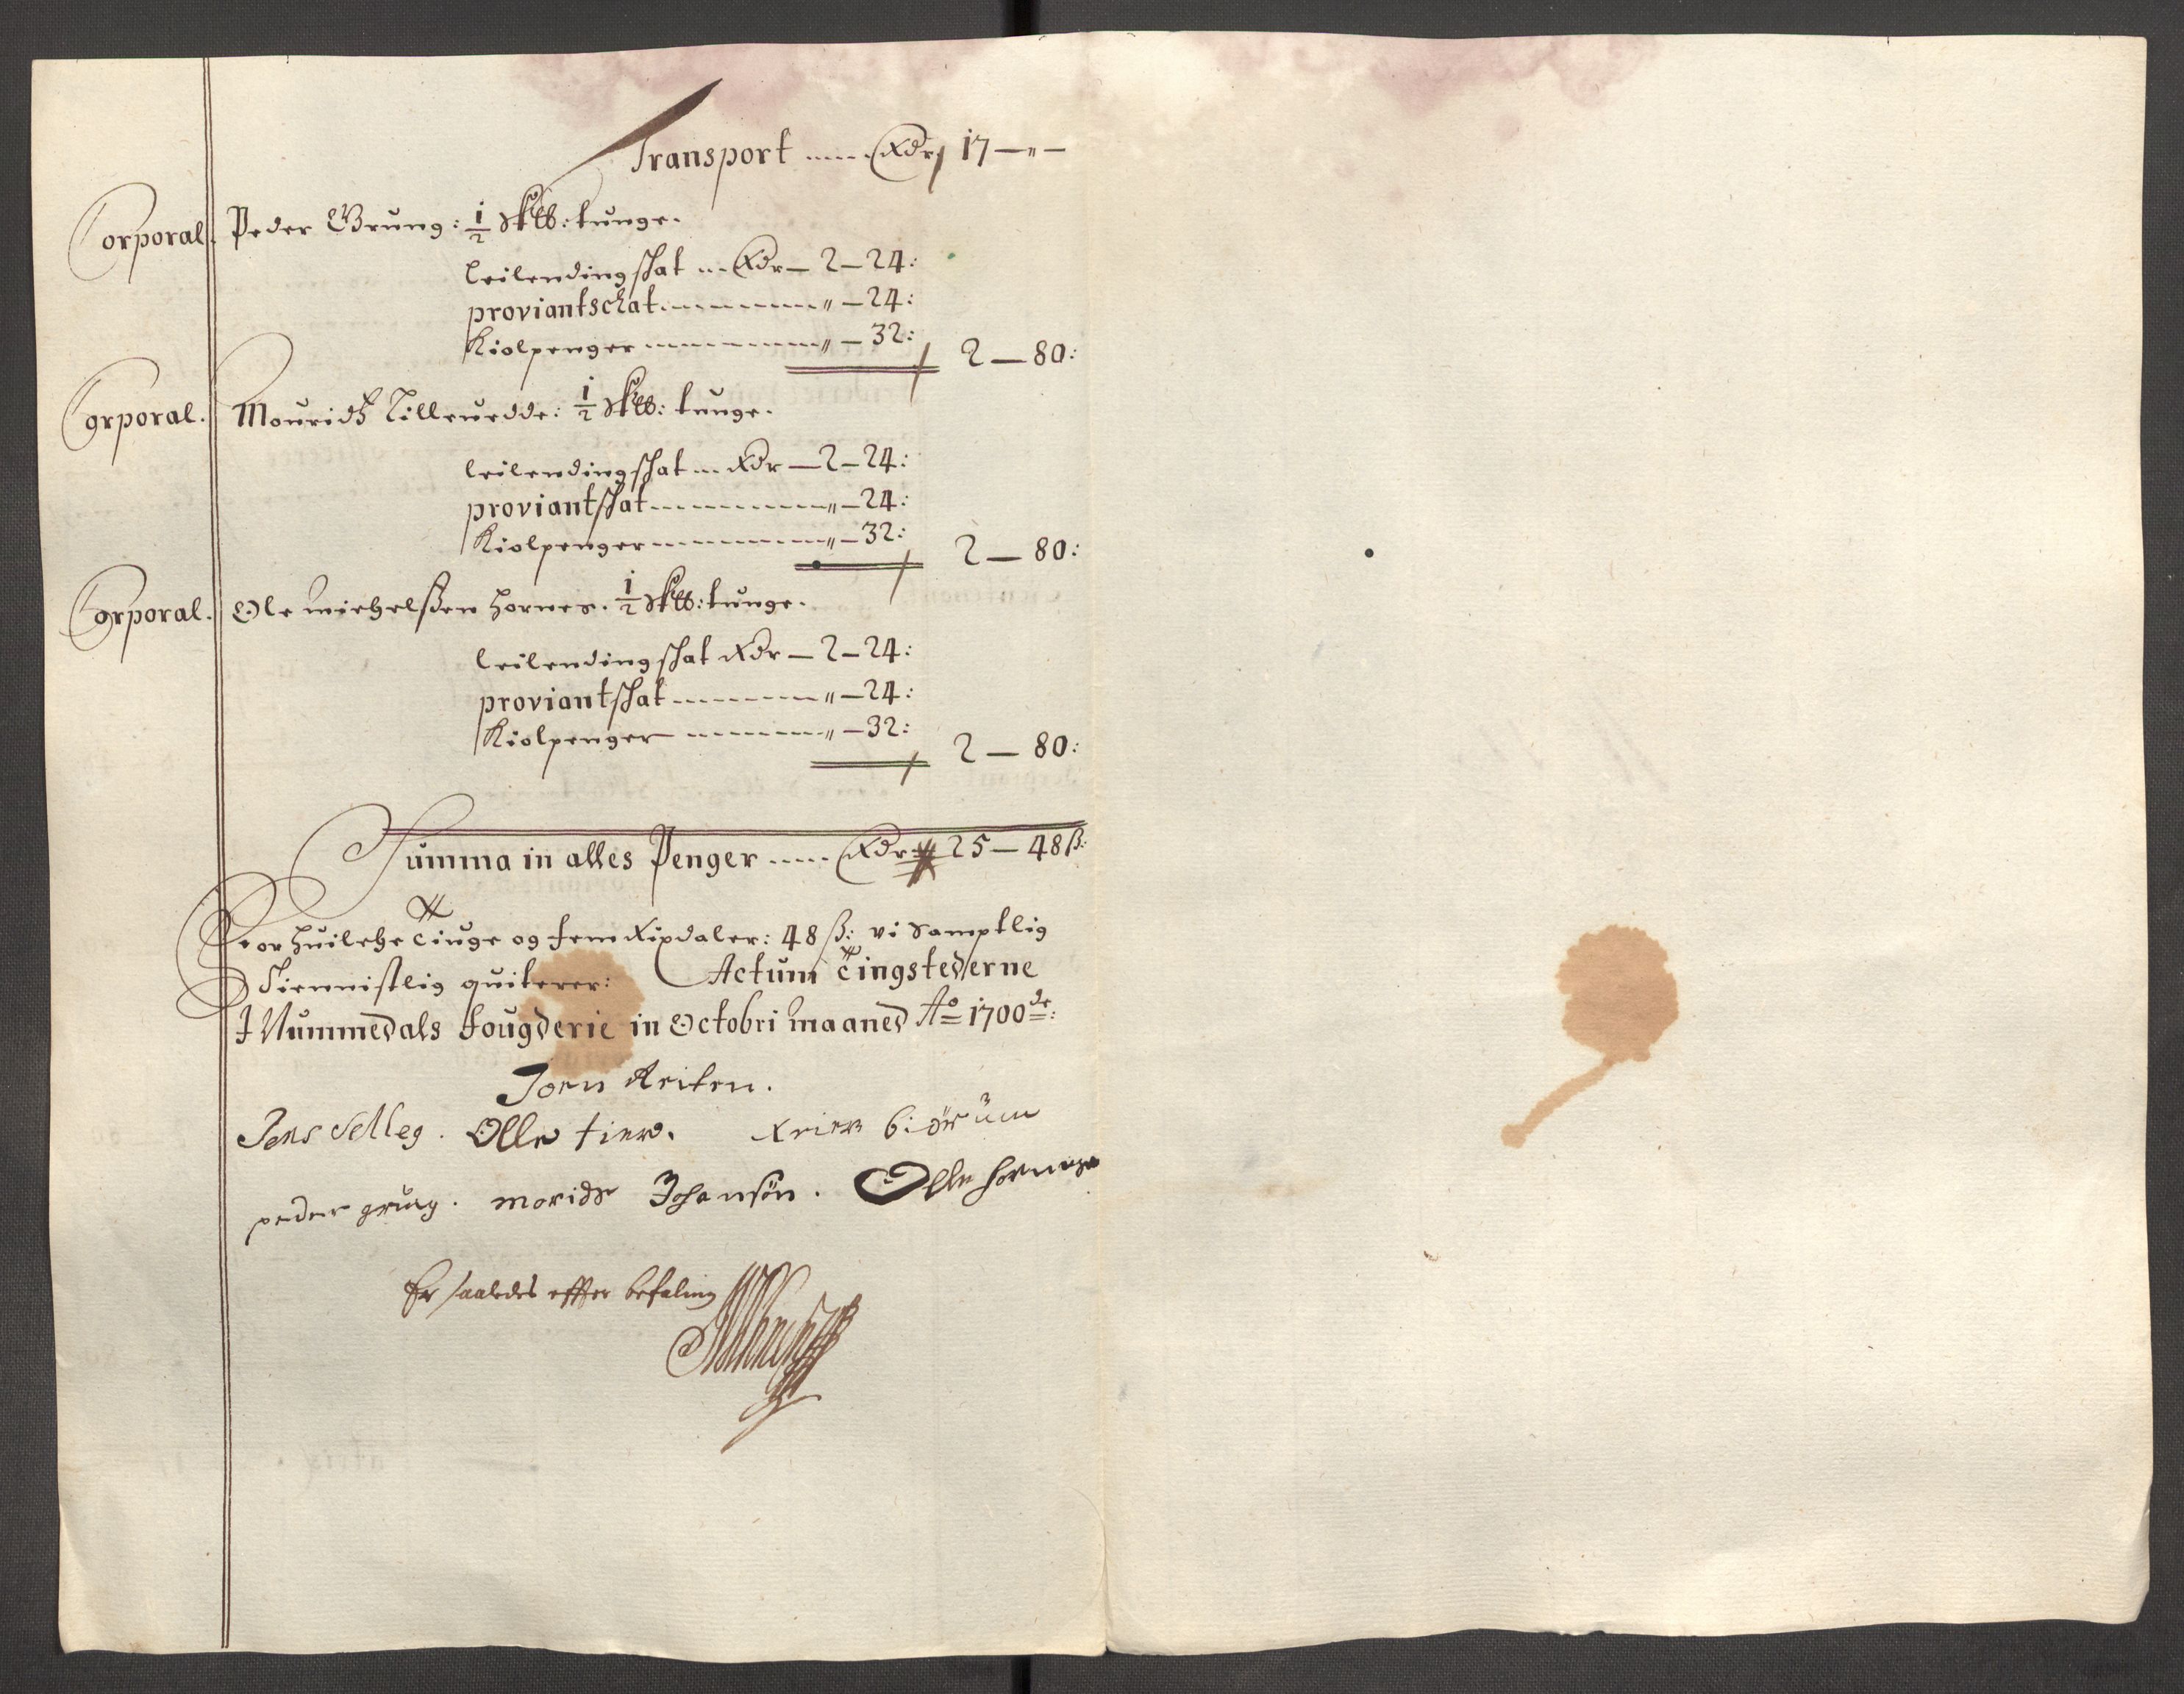 Transport ..... Rdr 17 — „ —
Corporal. Peder Grung: 1/2 Sk℔: tunge.
leilendingschat ... Rdr — 2 — 24:
proviantschat .......... „ — 24:
Kiolpenger .......... „ — 32: 2 — 80:
Corporal. Mouridß Tilleuedde: 1/2 Sk℔: tunge.
leilendingschat ... Rdr — 2 — 24:
proviantschat .......... „ — 24:
Kiolpenger .......... „ — 32: 2 — 80:
Corporal. Ole Michelßen Hornes. 1/2 Sk℔: tunge.
leilendingschat Rdr — 2 — 24:
proviantschat .......... „ — 24:
Kiolpenger .......... „ — 32: 2 — 80:
Summa in alles Penger ..... Rdr 25 — 48 ß:
For huilche tiuge og fem Rixdaler: 48 ß: vi samptlig
Tiennistlig quiterer: Actum tingstederne
I Nummedals fougderie in Octobri maaned Ao 1700de:
Joen Reiten.
Jens Selleg. Olle
peder grung. moridz Johansön. Olle hornes
Er saaledes efter befaling